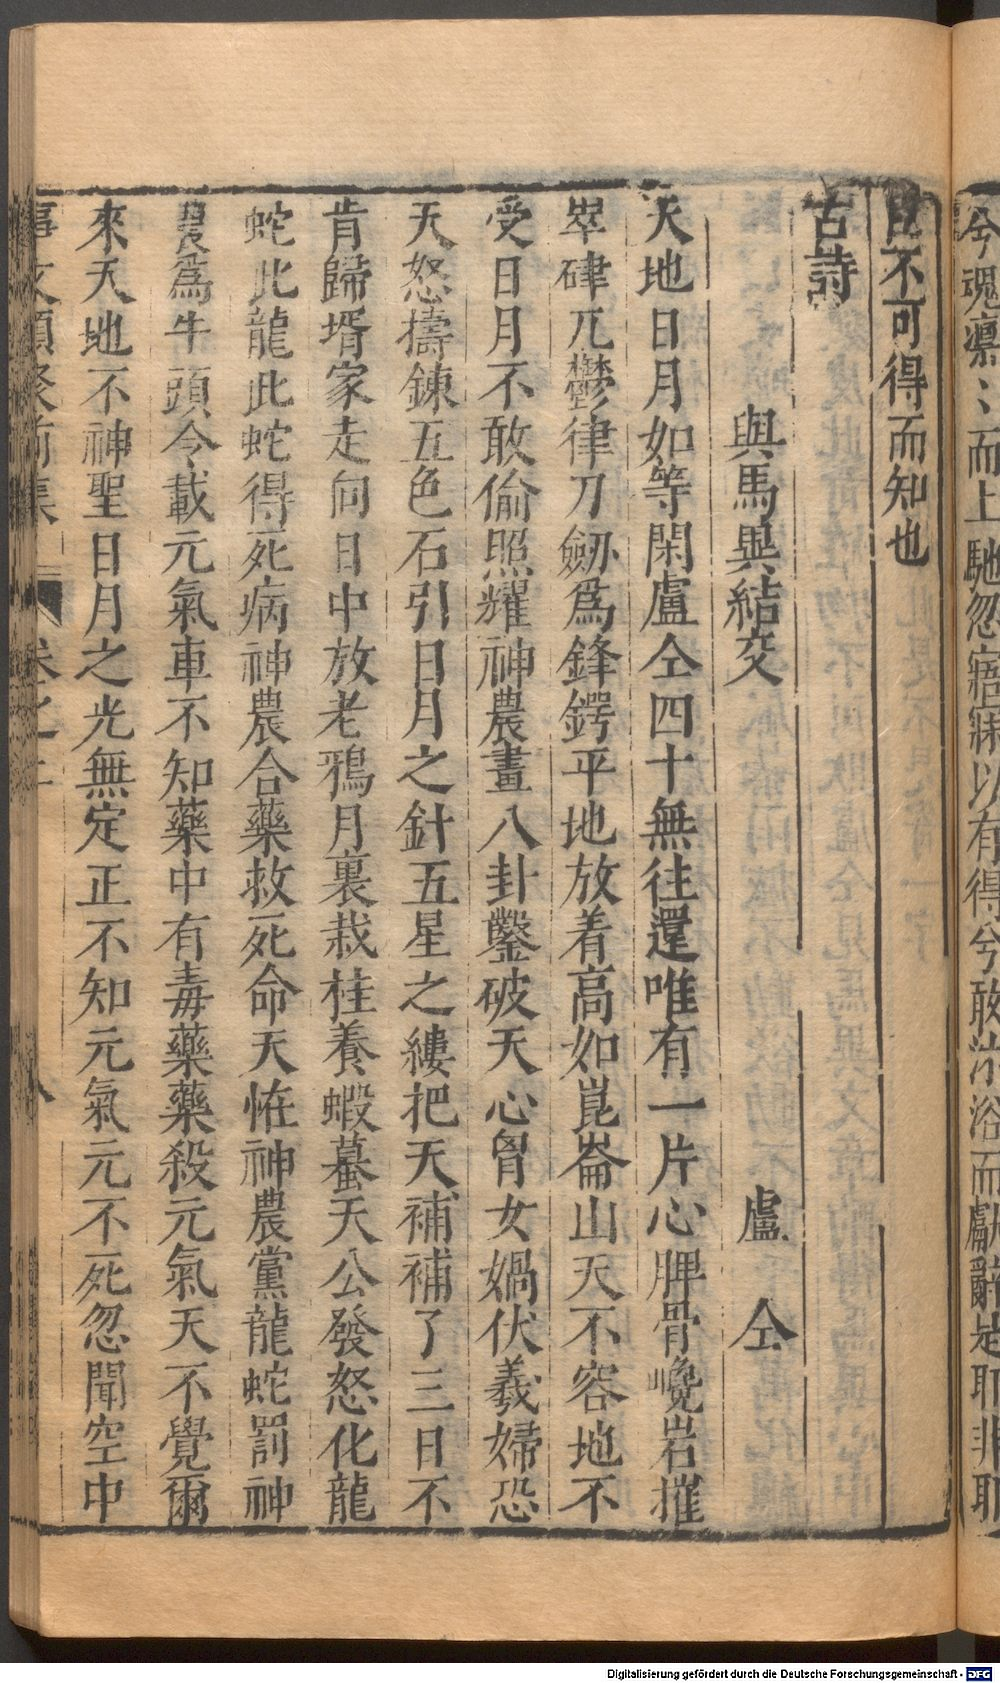 兮魂凛〻而上馳忽寤寐以有得兮敢沐浴而獻辭是耶非耶
且不可得而知也
古詩
與馬異結交　盧仝
天地日月如等閑盧仝四十無往還唯有一片心脾骨巉岩摧
崒硉兀鬱律刀劒爲鋒鍔平地放着高如崑崙山天不容地不
受日月不敢偷照耀神農畫八卦鑿破天心胷女媧伏羲婦恐
天怒擣鍊五色石引日月之針五星之縷把天補補了三日不
肯歸壻家走向日中放老鴉月裏栽桂養蝦蟇天公發怒化龍
蛇此龍此蛇得死病神農合藥救死命天恠神農黨龍蛇罰神
農爲牛頭令載元氣車不知藥中有毒藥藥殺元氣天不覺爾
來天地不神聖日月之光無定正不知元氣元不死忽聞空中
事文類聚前集 卷之二 八
Digitalisierung gefördert durch die Deutsche Forschungsgemeinschaft - DFG